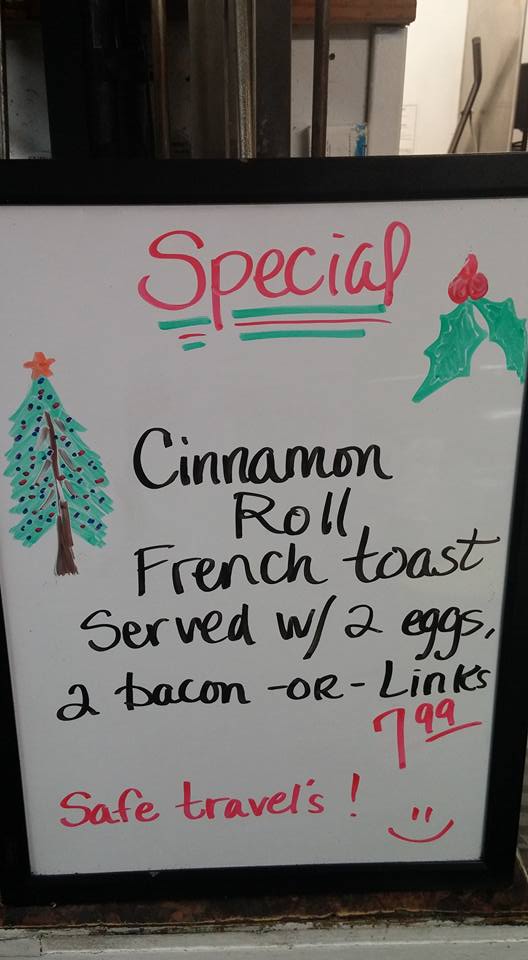 Special
Cinnamon
Roll
French toast
Served w/ 2 eggs,
2 bacon -OR- Link's
7 99
Safe travel's !